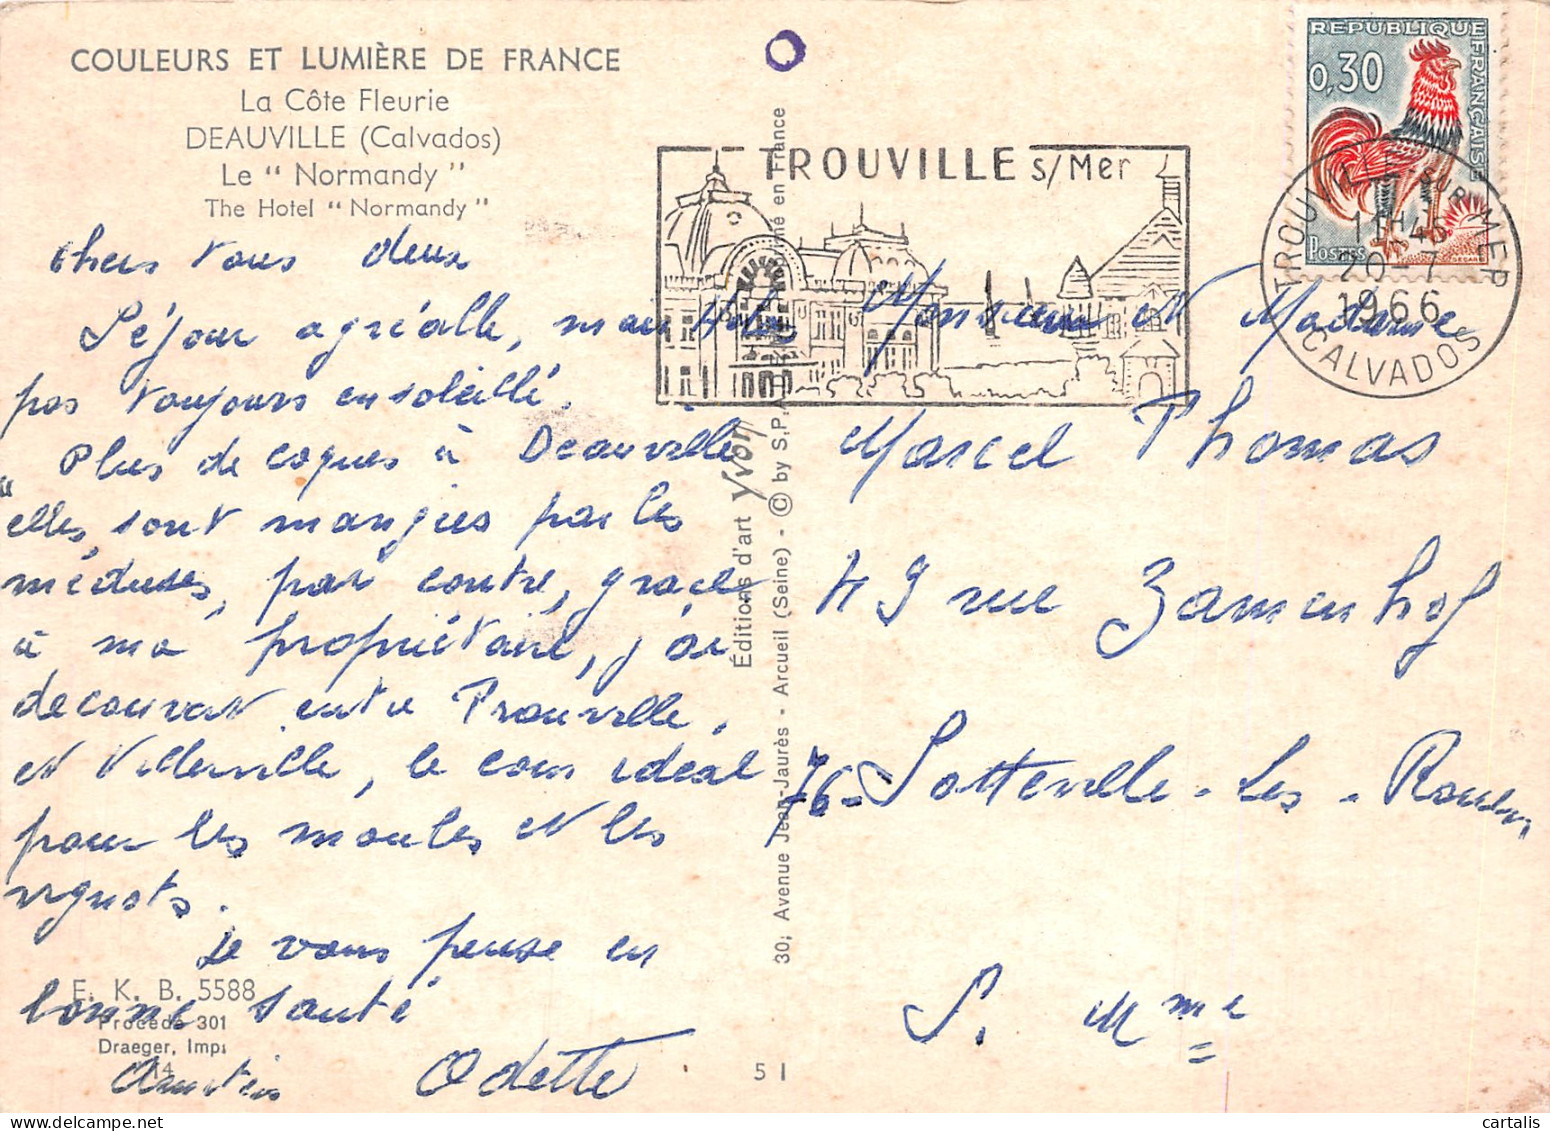 COULEURS ET LUMIÈRE DE FRANCE
La Côte Fleurie
DEAUVILLE (Calvados)
Le "Normandy"
The Hotel "Normandy"
Chers vous deux
Séjour agréable, mais
pas toujours ensoleillé.
Plus de coques à Deauville
elles sont mangées par les
méduses, par contre, grâce
à ma propriétaire, j'ai
decouvert entre Trouville,
et Villerville, le coin idéal
pour les moules et les
vignots.
Je vous pense en
bonne santé
Odette
E. K. B. 5588
Procédé 301
Draeger, Imp.
14
5 1
Éditions d'art Yvon
30, Avenue Jean-Jaurès - Arcueil (Seine) - © by S.P.A.
en France
TROUVILLE s/Mer
REPUBLIQUE FRANÇAISE
0,30
POSTES
DECARIS
TROUVILLE-SUR-MER
11H45
20-7
1966
CALVADOS
Monsieur et Madame
Marcel Thomas
49 rue Zamenhof
76 - Sotteville-Les-Rouen
S. Mme
cartalis